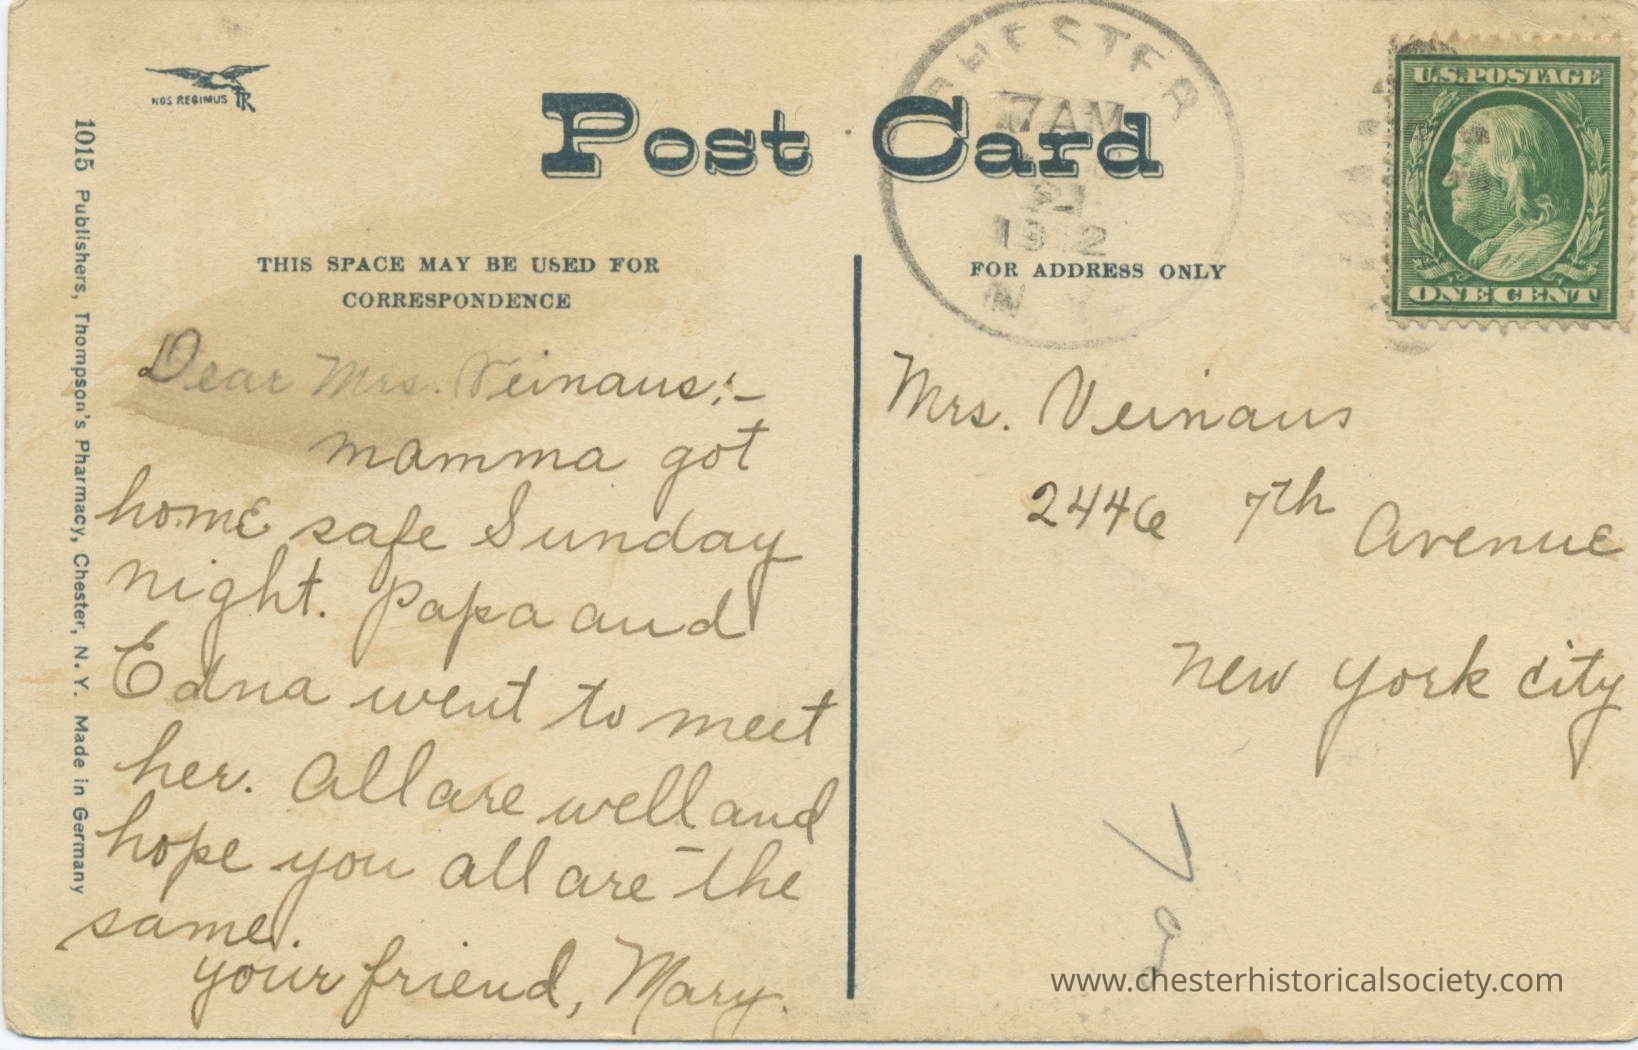 NOS REGIMUS TR
Post Card
CHESTER
7 AM
1912
N Y
U.S. POSTAGE
ONE CENT
THIS SPACE MAY BE USED FOR
CORRESPONDENCE
FOR ADDRESS ONLY
1015 Publishers, Thompson's Pharmacy, Chester, N. Y. Made in Germany
Dear Mrs. Veinaus:-
mamma got
home safe Sunday
night. Papa and
Edna went to meet
her. All are well and
hope you all are the
same.
your friend, Mary.
Mrs. Veinaus
2446 7th Avenue
New York City
www.chesterhistoricalsociety.com